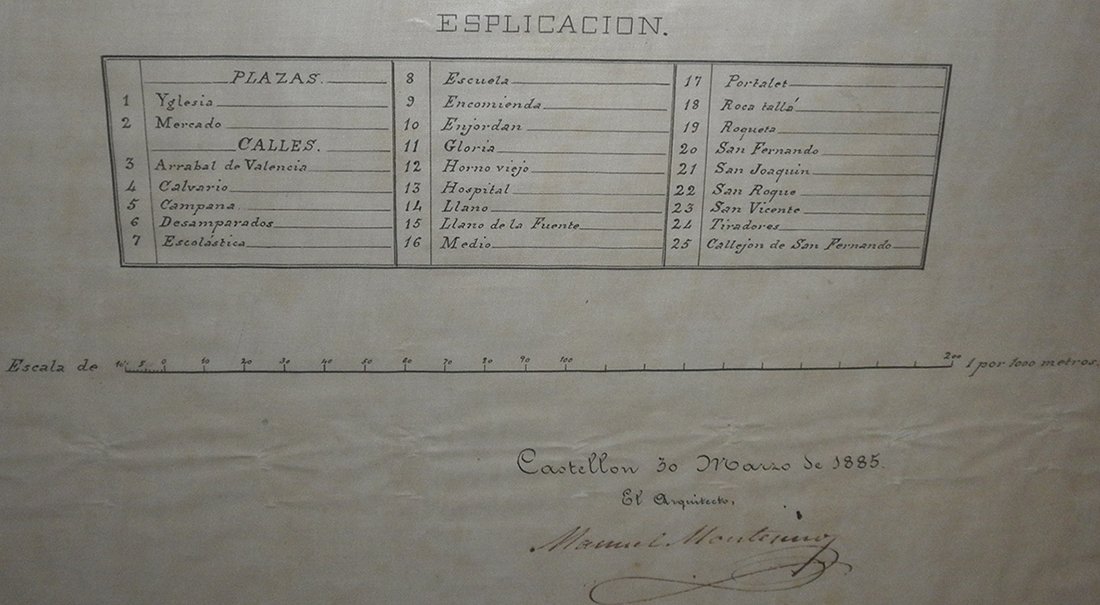 ESPLICACION.
PLAZAS.
1 Yglesia
2 Mercado
CALLES.
3 Arrabal de Valencia
4 Calvario
5 Campana
6 Desamparados
7 Escolástica
8 Escuela
9 Encomienda
10 Enjordan
11 Gloria
12 Horno viejo
13 Hospital
14 Llano
15 Llano de la Fuente
16 Medio
17 Portalet
18 Roca tallá
19 Roqueta
20 San Fernando
21 San Joaquin
22 San Roque
23 San Vicente
24 Tiradores
25 Callejon de San Fernando
Escala de 10 5 0 10 20 30 40 50 60 70 80 90 100 200 1 por 1000 metros.
Castellon 30 Marzo de 1885.
El Arquitecto,
Manuel Montesino